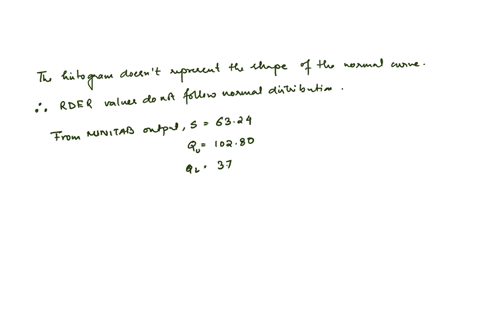 The histogram doesn't represent the shape of the normal curve.
∴ RDER values do not follow normal distribution.
From MINITAB output, S = 63.24
Qu = 102.80
QL = 37